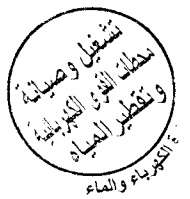 تشغيل وصيانة
محطات القوى الكهربائية
وتقطير المياه
ة الكهرباء والماء